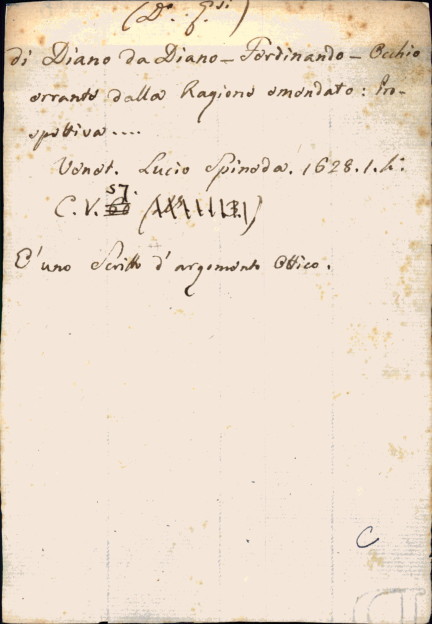 di Diano da Diano - Ferdinando - Occhio
errante dalla Ragione emendato: Pro-
spettiva....
Venet. Lucio Spineda. 1628. 1.
57.
C. V. 60
E' uno Scritto d'argomento Ottico.
C